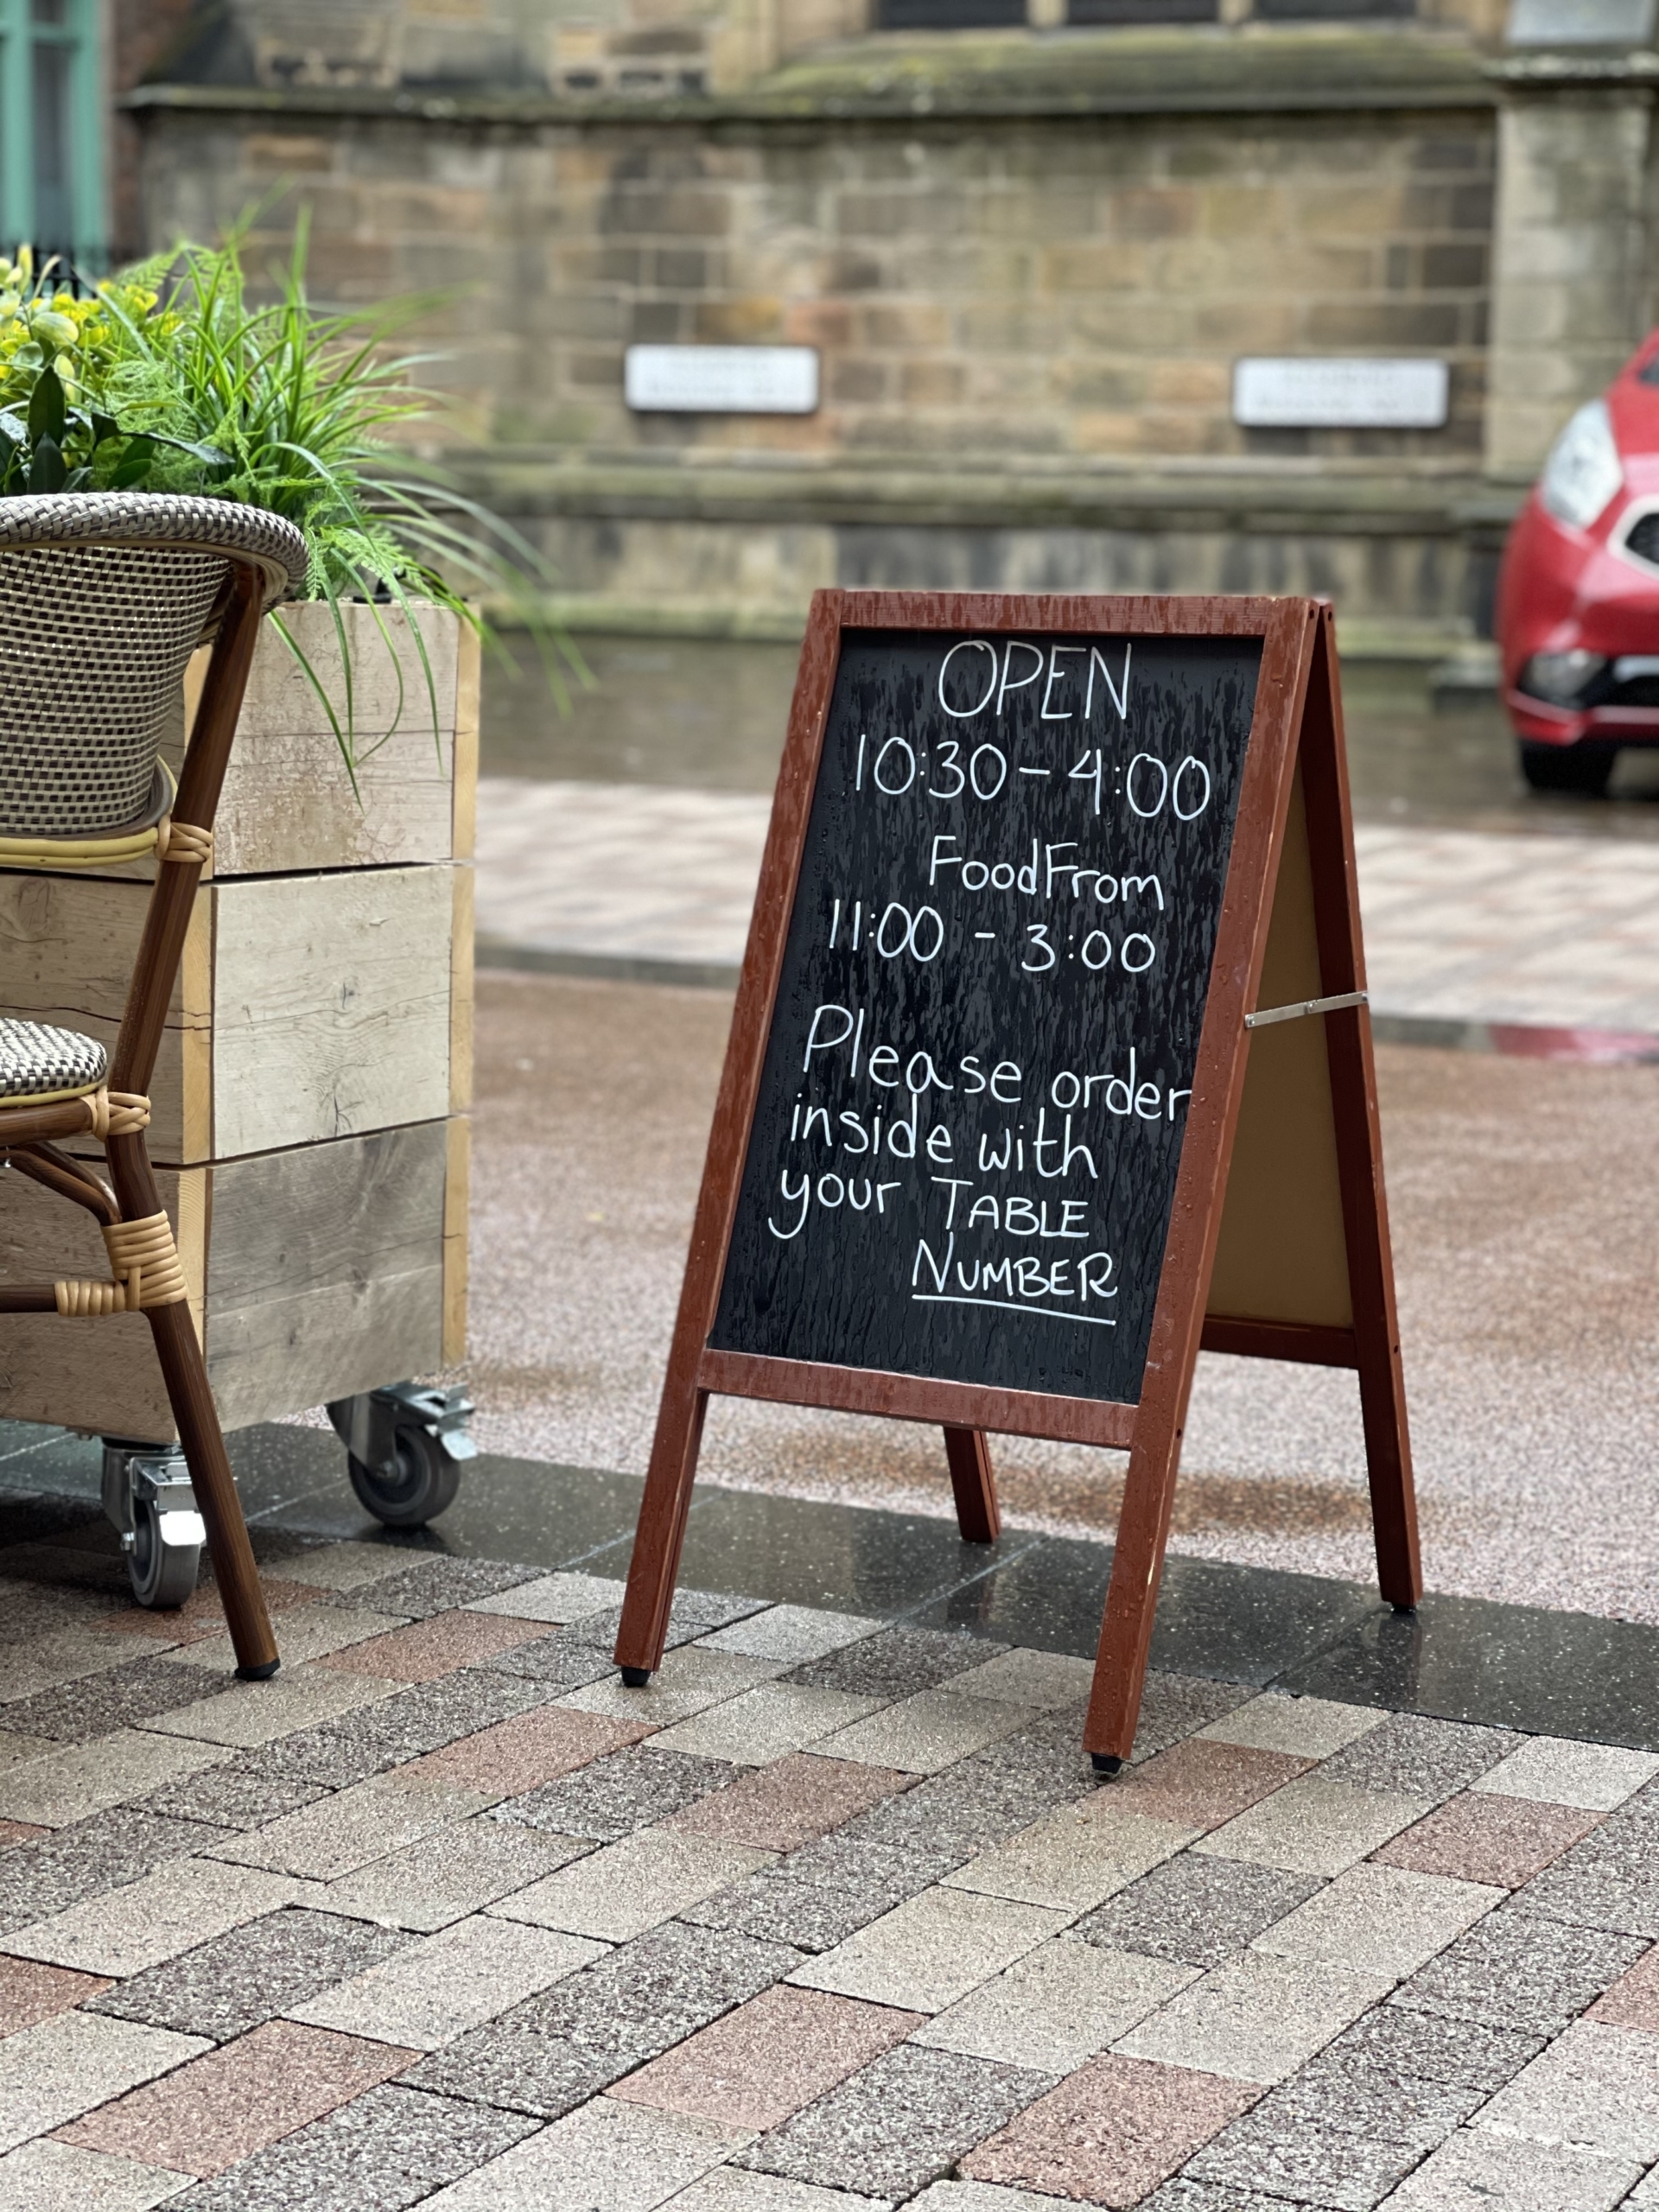 OPEN
10:30 - 4:00
Food From
11:00 - 3:00
Please order
inside with
your TABLE
NUMBER